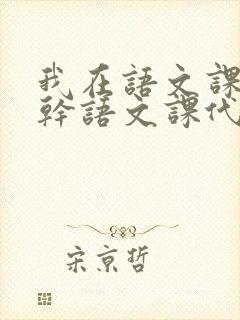 我在語文課
幹語文課代
宋京哲